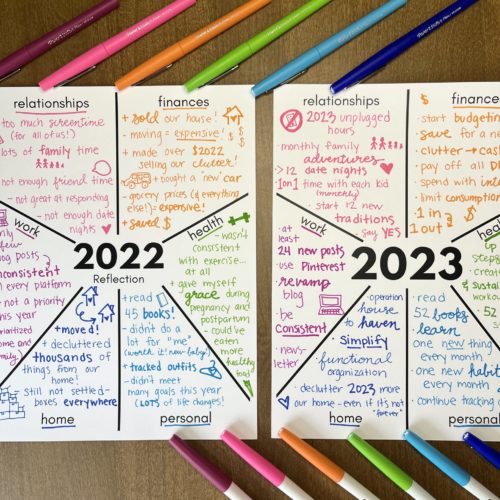 relationships
too much screentime
(for all of us!)
+ lots of family time
not enough friend time
- not great at responding
- not enough date
nights
finances
+ sold our house!
- moving = expensive!
+ made over $2022
selling our clutter!
+ bought a "new" car
- grocery prices (& everything
else!) = expensive!
+ saved $
work
few
blog posts
inconsistent
every platform
- not a priority
this year
prioritized
home and
family
2022
Reflection
health
- wasn't
consistent
with exercise...
at all
+ gave myself
grace during
pregnancy and
postpartum
- could've
eaten
more
healthy
foods
+ moved!
+ decluttered
thousands of
things from our
home!
- still not settled-
boxes everywhere
home
+ read
45 books!
- didn't do a
lot for "me"
(worth it: new baby!)
+ tracked outfits
- didn't meet
many goals this year
(LOTS of life changes!)
personal
relationships
2023 unplugged
hours
· monthly family
adventures
> 12 date nights
· 1 on 1 time with each kid
(monthly)
· start 12 new
traditions
· say YES
finances
· start budgeting
· save for a
· clutter → cash
· pay off all
· spend with
· limit consumption
1 in
1 out
work
· at
least
24 new posts
· use Pinterest
· revamp
blog
· be
consistent
· news-
letter
2023
step
52
· operation
house
to haven
· simplify
· functional
organization
· declutter 2023 more
our home - even if it's not
"forever"
home
· read
52 books
· learn
one new thing
every month
· one new habit
every month
· continue tracking
personal